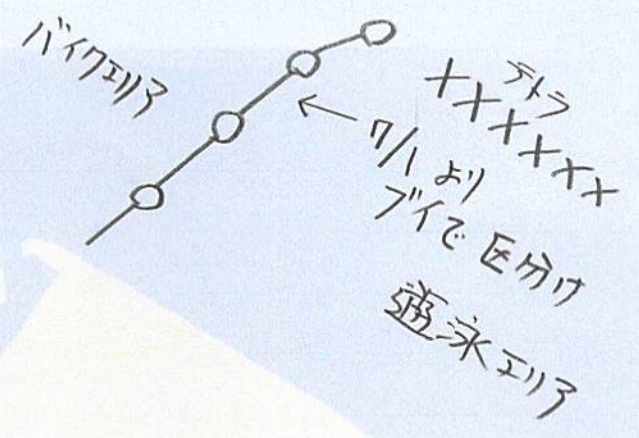 バイクエリア
テトラ
7/1より
ブイで区分け
遊泳エリア